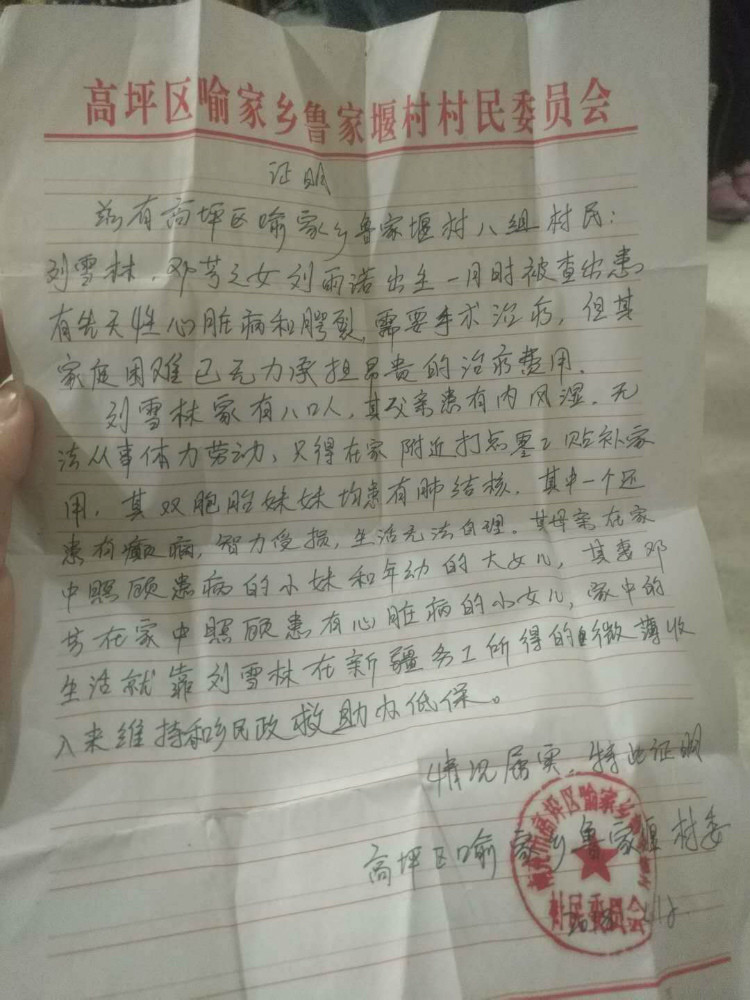 高坪区喻家乡鲁家堰村村民委员会
证明
兹有高坪区喻家乡鲁家堰村八组村民：
刘雪林、邓芩之女刘雨诺出生一月时被查出患
有先天性心脏病和腭裂，需要手术治疗，但其
家庭困难已无力承担昂贵的治疗费用．
刘雪林家有八口人，其父亲患有内风湿．无
法从事体力劳动，只得在家附近打点零工贴补家
用，其双胞胎妹妹均患有肺结核．其中一个还
患有癫痫，智力受损，生活无法自理．其母亲在家
中照顾患病的小妹和年幼的大女儿，其妻邓
芩在家中照顾患有心脏病的小女儿，家中的
生活就靠刘雪林在新疆务工所得的微薄收
入来维持和乡民政救助办低保。
情况属实、特此证明
高坪区喻家乡鲁家堰村委
高坪区喻家乡
村民委员会